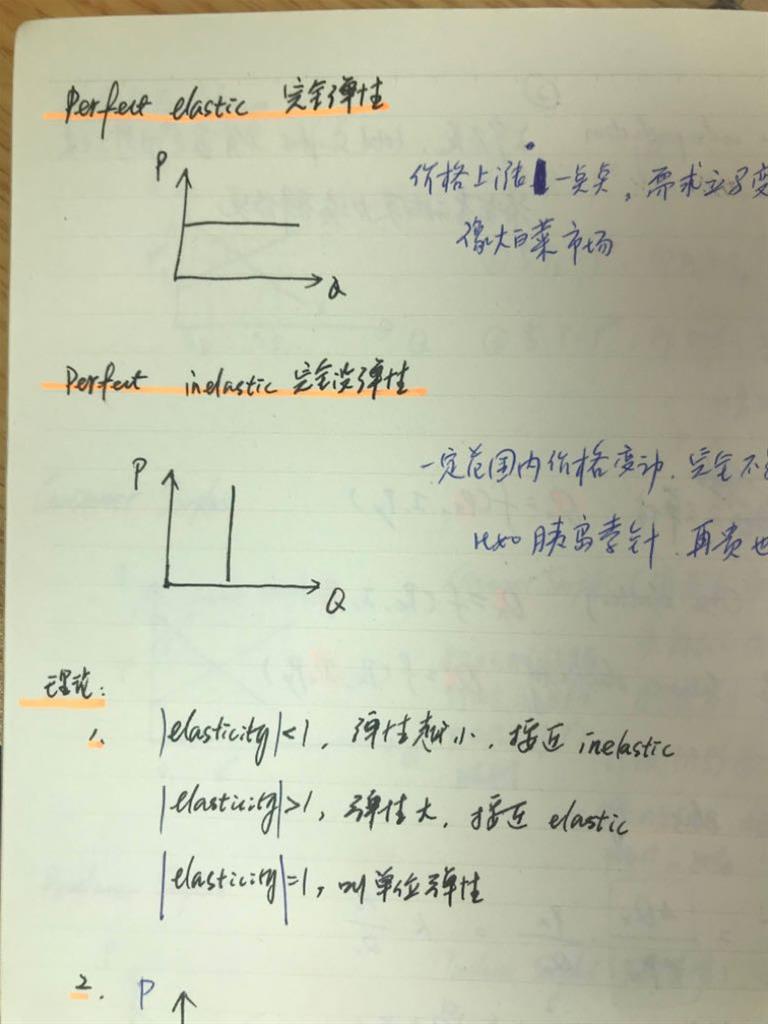 Perfect elastic 完全弹性
P
价格上涨一点点，需求立马变
像大白菜市场
Q
Perfect inelastic 完全没弹性
P
一定范围内价格变动，完全不
胰岛素针，再贵也
Q
理论：
1、 |elasticity|<1，弹性越小，接近 inelastic
|elasticity|>1，弹性大，接近 elastic
|elasticity|=1，叫单位弹性
2. P